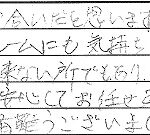 合いだと思います
ームにも気持ち
来ない所でもあり
安心してお任せ
有難うございました